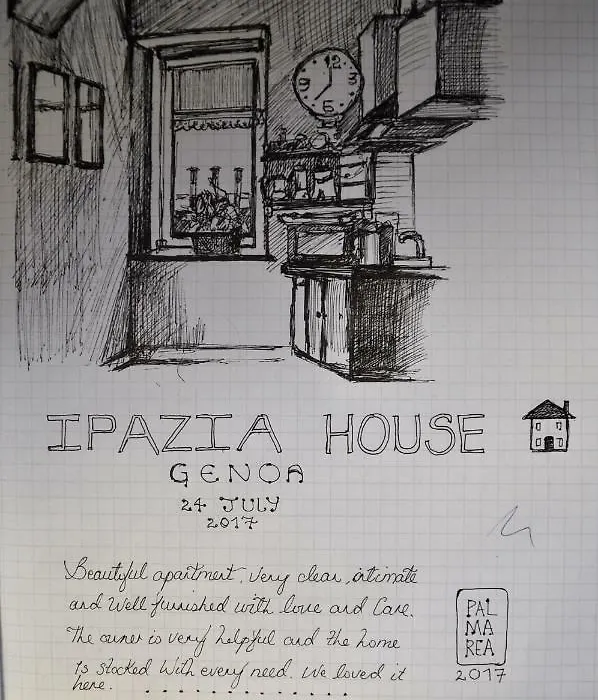 12
9 3
6
IPAZIA HOUSE
GENOA
24 JULY
2017
Beautiful apartment, very clean, intimate
and well furnished with love and Care.
The owner is very helpful and the home
Is stocked With every need. We loved it
here. . . . . . . . . . . . .
PAL
MA
REA
2017